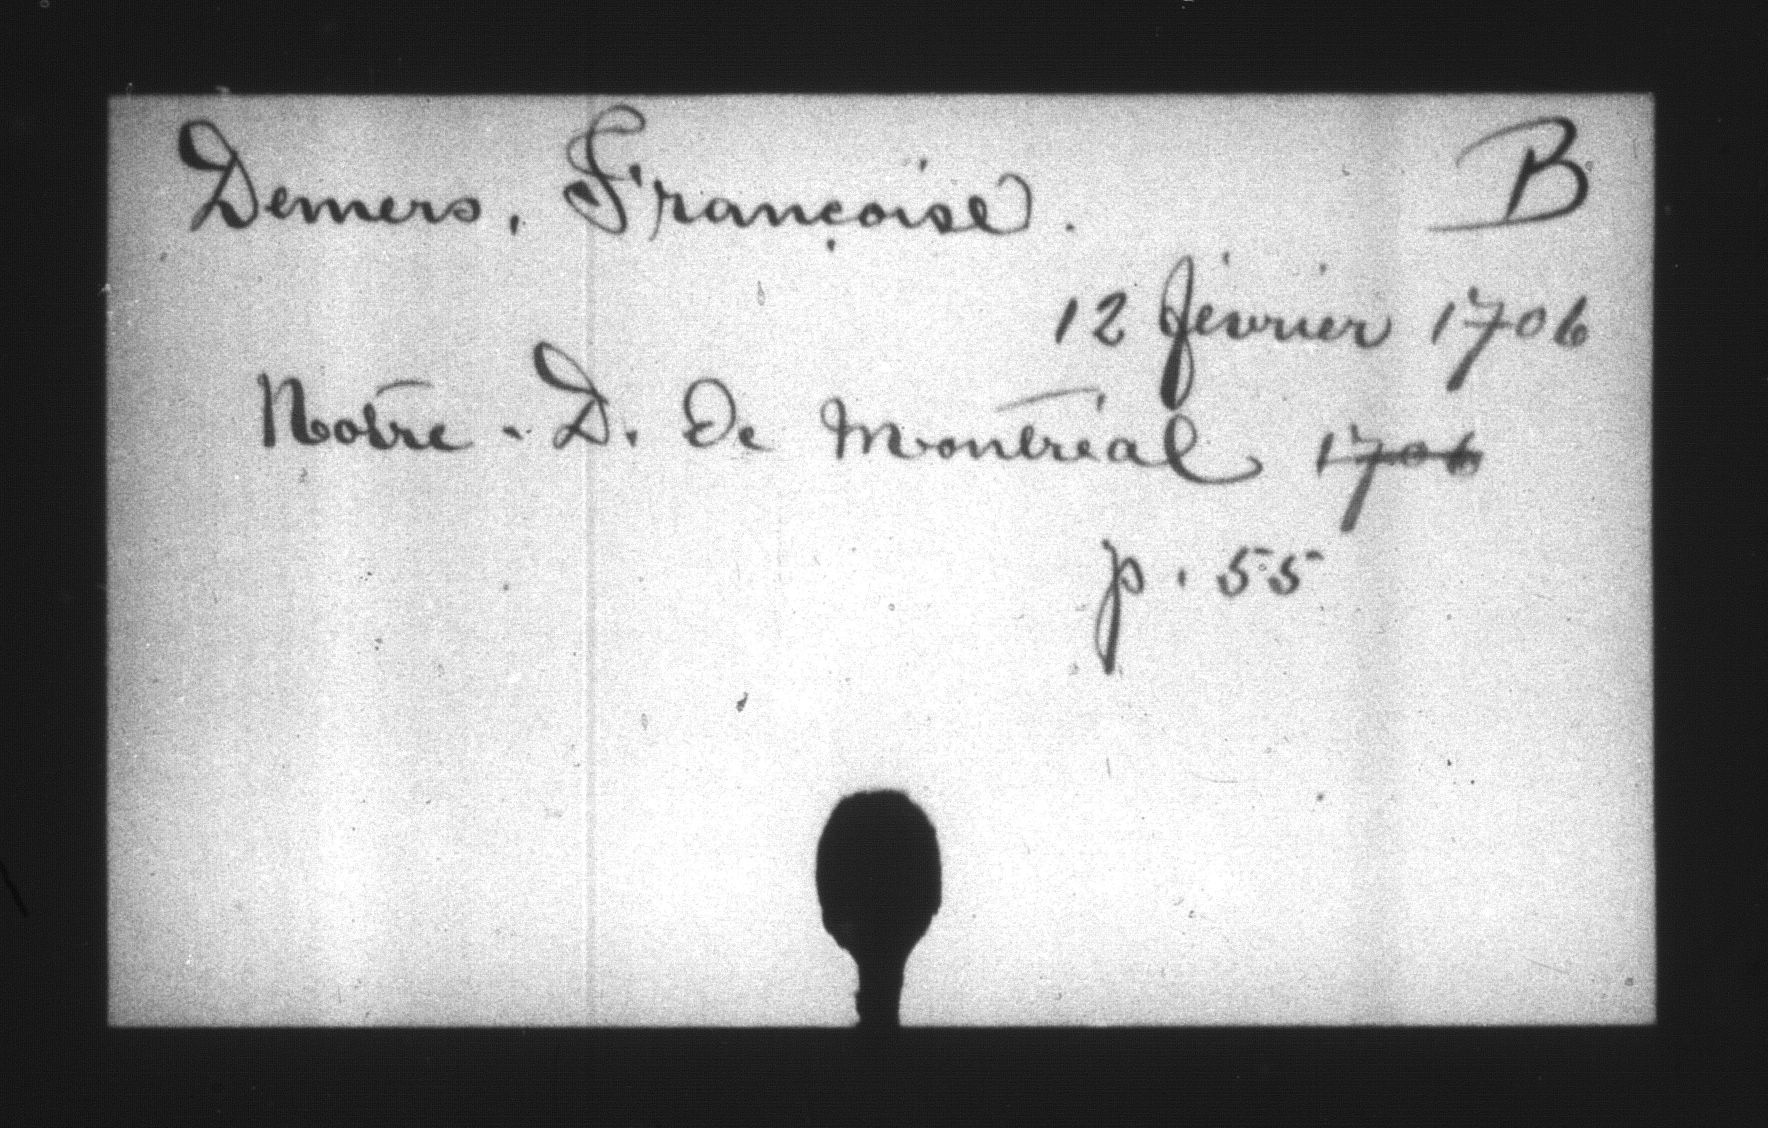 Demers, Françoise. B
12 février 1706
Notre-D. De Montréal 1706
p. 55